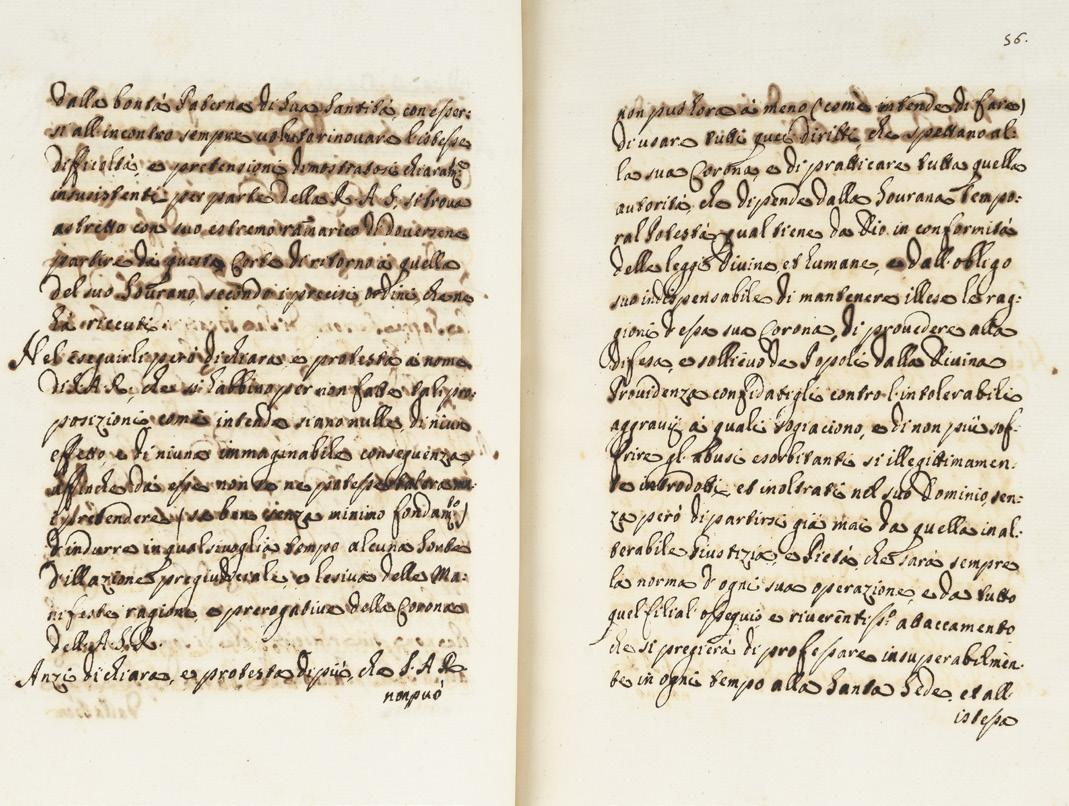 dalla bontà Paterna di Sua Santità con esser:
si all'incontro sempre voluto rinovare l'istesse
difficoltà, e pretensioni dimostratosi chiaramte
insusistenti per parte della R. A. S., si trova
astretto con suo estremo ramarico di doversene
partire da questa Corte di ritorno a quella
del suo Sovrano secondo i precisi ordini che ne
hà riceuti.
Nel eseguirli però dichiara, e protesta a nome
di S. A. R., che si habbino per non fatte tali pro:
posizioni come intende siano nulle di niun
effetto, e di niuna immaginabile conseguenza,
affinche da esse non se ne potesse
pretendere (se ben senza minimo fondamto)
d'indurre in qual sivoglia tempo alcuna sorte
d'illazione pregiudiciale, e lesiva delle Ma:
nifeste ragioni e prerogative della Corona
dell'A. S. R.
Anzi dichiara, e protesta di più, che S. A. R.
non può
56.
non può lora à meno (come intende di fare)
di usare tutti quei diritti che spettano al:
la sua Corona e di pratticare tutta quella
autorità, che dipende dalla Sovrana Tempo:
ral Potestà qual tiene da Dio in conformità
delle leggi Divine, et humane, e dall'obligo
suo indispensabile di mantenere illese le rag:
gioni d'essa sua Corona, di provedere alla
difesa, e sollievo de Popoli dalla Divina
Providenza confidatigli contro l'intolerabili
aggravij à quali sogiaciono, e di non più sof:
frire gl'abusi esorbitanti si illegittimamen:
te introdotti et inoltrati nel suo Dominio, sen:
za però dipartirsi già mai da quella inal:
terabile Giustizia, e Pietà che sarà sempre
la norma d'ogni sua operazione, e da tutto
quel filial' ossequio e riverentisso attaccamento
che si pregierà di professare insuperabilmen:
te in ogni tempo alla Santa Sede, et all'
istessa